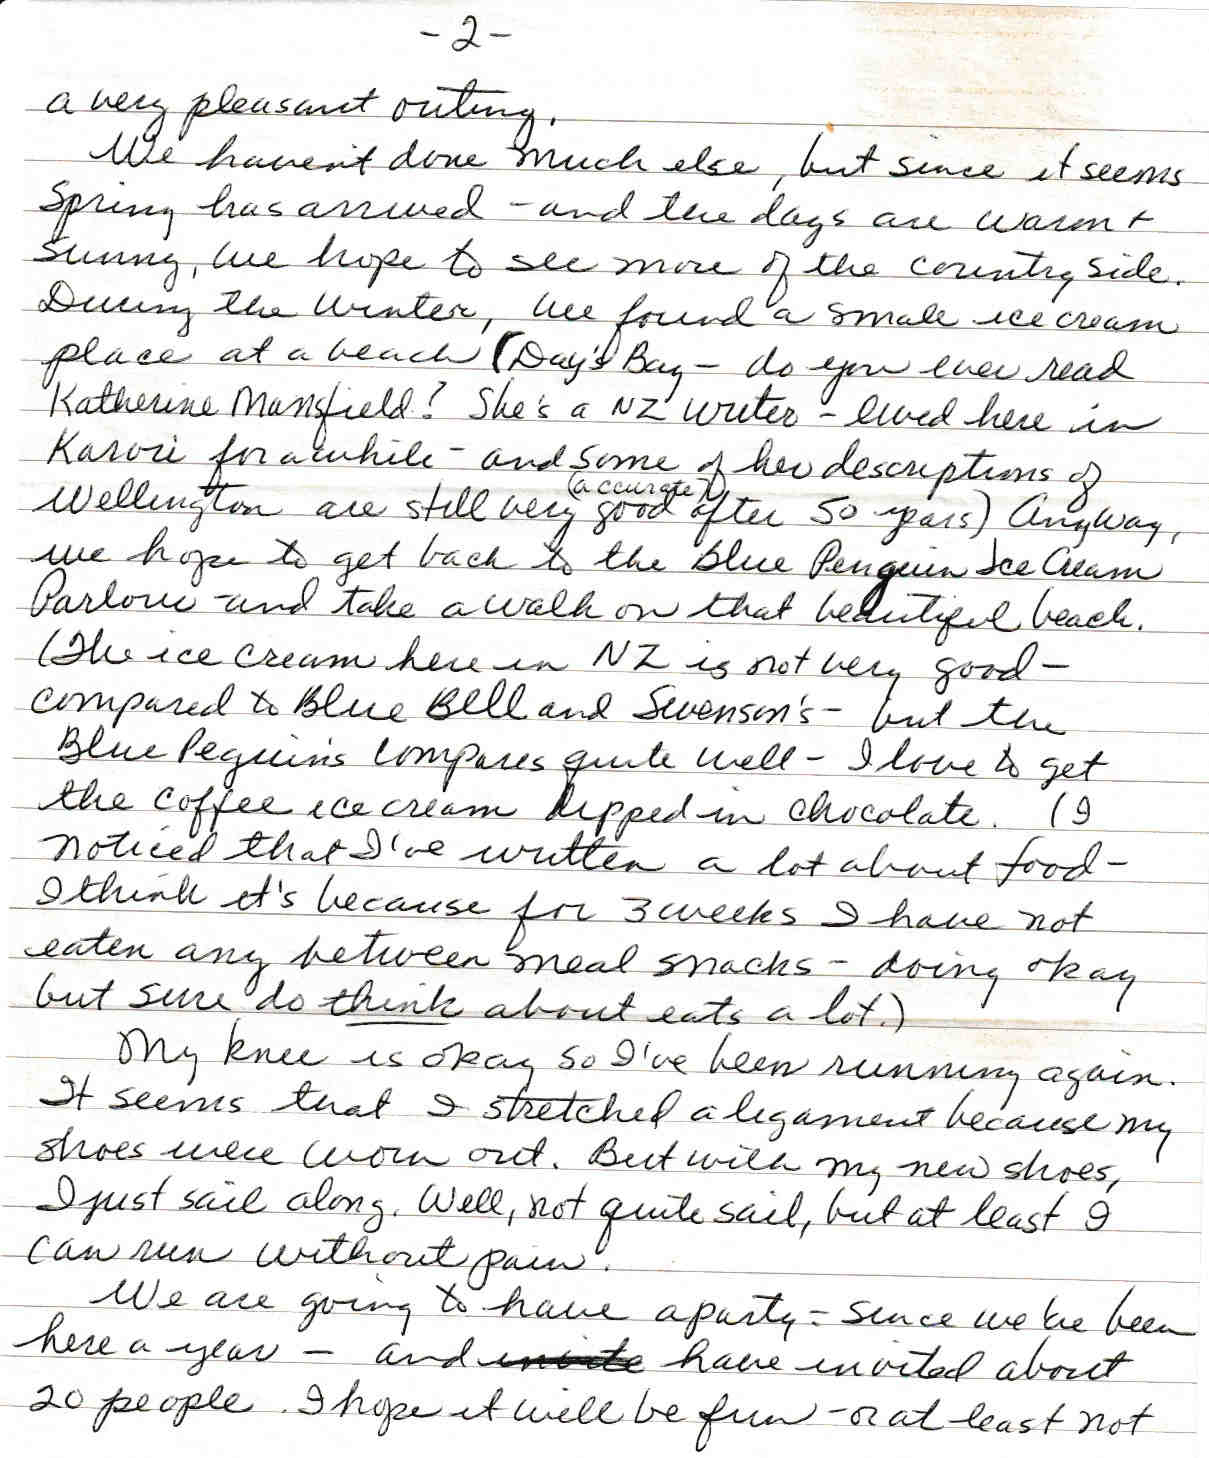 -2-
a very pleasant outing.
We haven't done much else, but since it seems
Spring has arrived - and the days are warm +
sunny, we hope to see more of the countryside.
During the winter, we found a small ice cream
place at a beach (Day's Bay - do you ever read
Katherine Mansfield? She's a NZ writer - lived here in
Karori for awhile - and some of her descriptions of
(accurate?)
Wellington are still very good after 50 years) Anyway,
we hope to get back to the Blue Penguin Ice Cream
Parlour - and take a walk on that beautiful beach.
(The ice cream here in NZ is not very good -
compared to Blue Bell and Swenson's - but the
Blue Peguin's compares quite well - I love to get
the coffee ice cream dipped in chocolate. (I
noticed that I've written a lot about food -
I think it's because for 3 weeks I have not
eaten any between meal snacks - doing okay
but sure do think about eats a lot.)
My knee is okay so I've been running again.
It seems that I stretched a ligament because my
shoes were worn out. But with my new shoes,
I just sail along. Well, not quite sail, but at least I
can run without pain.
We are going to have a party - since we've been
here a year - and invite have invited about
20 people. I hope it will be fun - or at least not